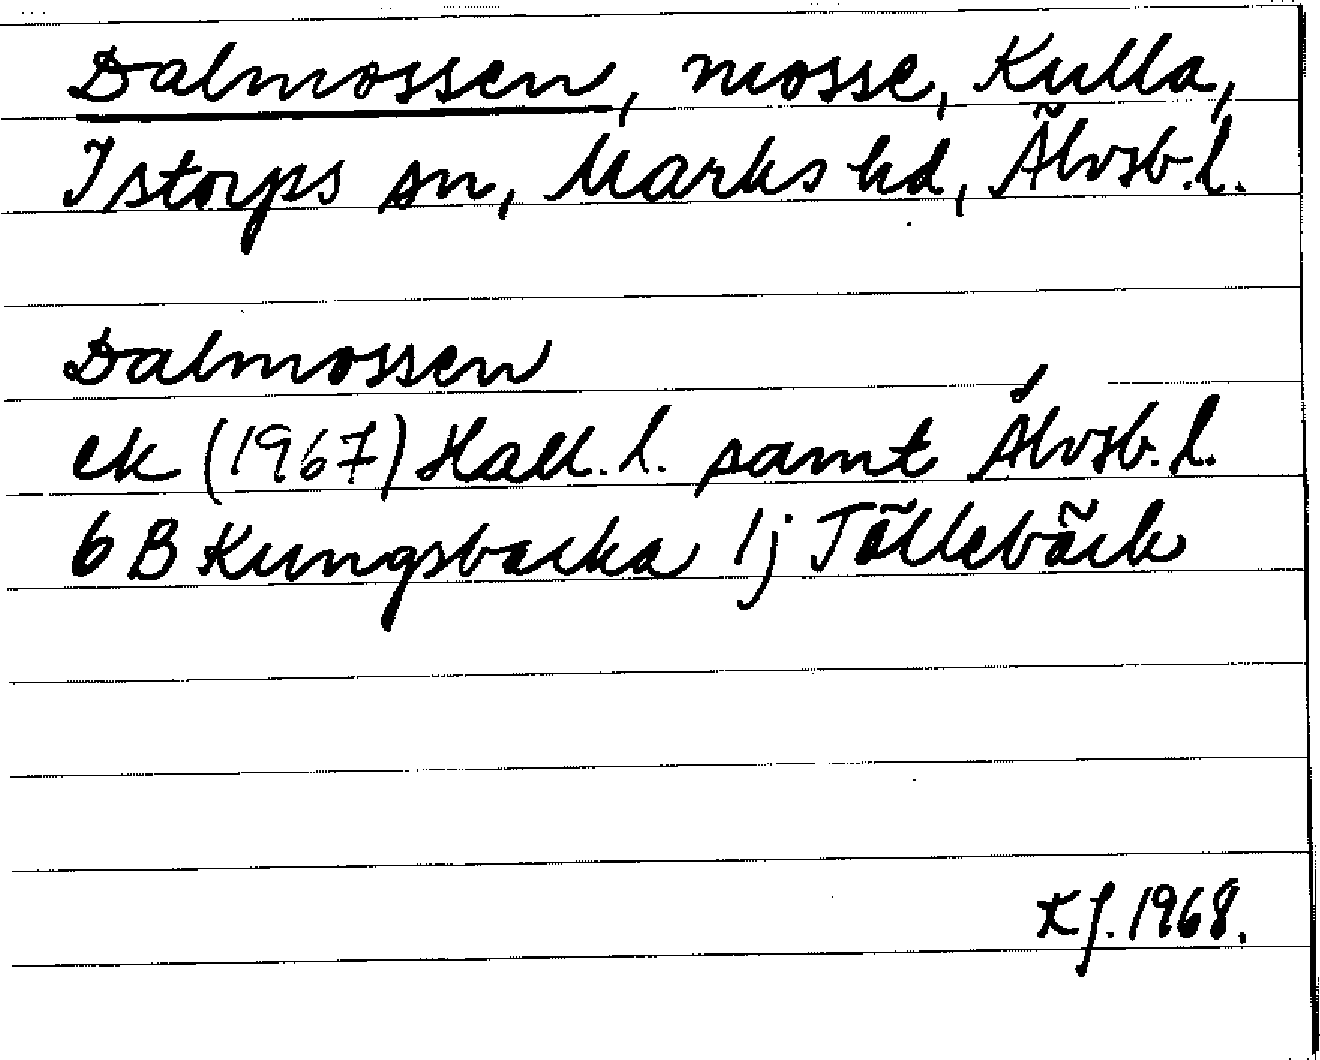 Dalmossen, mosse, Kulla,
Istorps sn, Marks hd, Älvsb.l.
Dalmossen
ek (1967) Hall.l. samt Älvsb.l.
6 B Kungsbacka 1j Tällebäck
KJ. 1968.